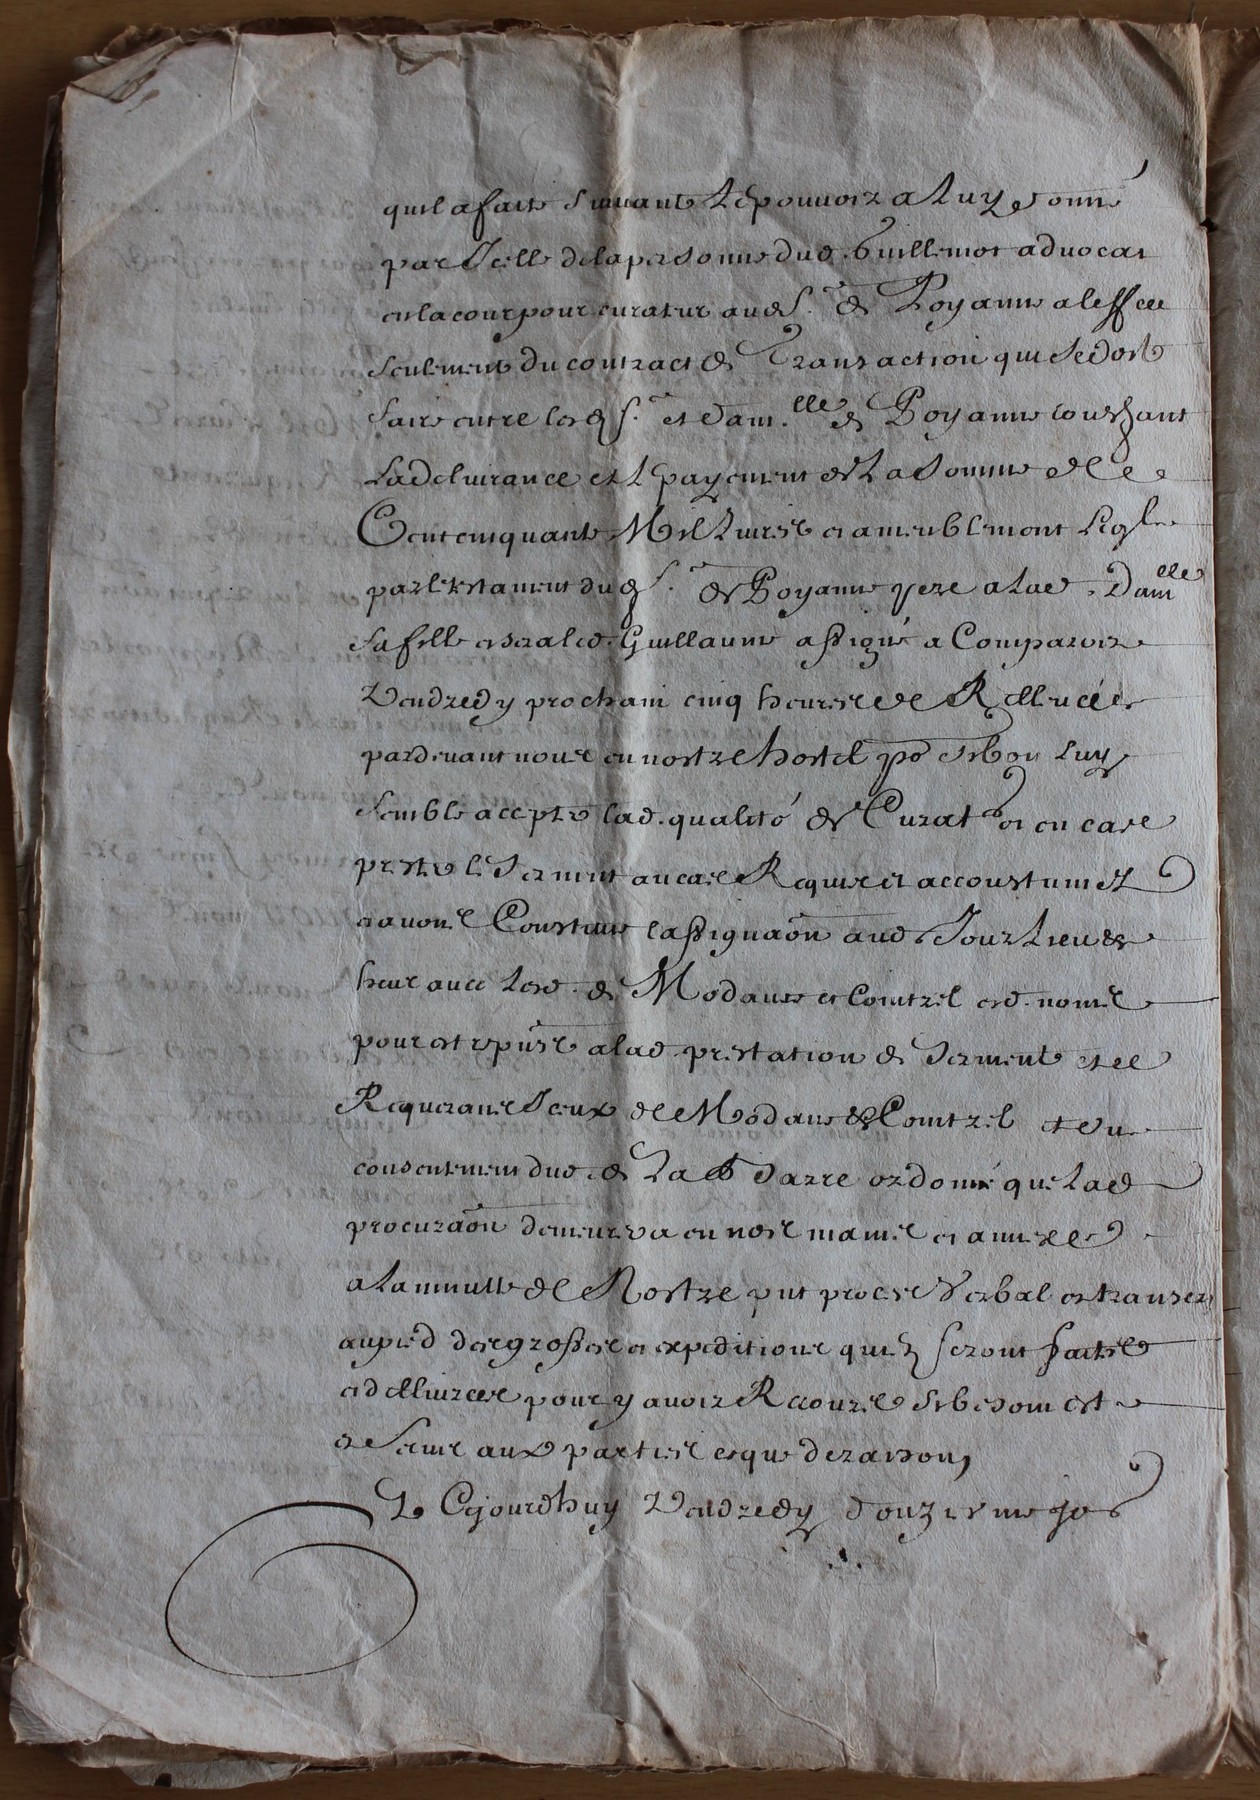 quil a faite suivant le pouvoir a luy donné
par Icelle de la personne dud. Guillemot advocat
en la cour pour curateur aud Sr. de Poyanne a leffect
seulement du contract de Transaction qui se doit
faire entre lesd Sr. et dam.lle de Poyanne touchant
La delivrance et le payement de La somme de
Cent cinquante Mil Livres et ameublement Legué
par le testament dud Sr. de Poyanne pere a lad. Damlle
sa fille et sera led. Guillaume assigné a Comparoir
Vendredy prochain cinq heures de Rellevée
pardevant nous en nostre hostel po si bon luy
semble accepter lad. qualité de Curatr et en cas
prester le serment au cas Requis et accoustumé
et avons Continué lassignaon aud Jour Lieu et
heure avec lesd. de Modave et Comtril esd. noms
pour estre pnts a lad. prestation de serment et ce
Requerans Iceux de Modave et Comtril et du
consentement dud. de La Barre ordonné que lad
procuraon demeurera en nos mains et annexée
a la minutte de Nostre pnt proces Verbal et transcr
au pied des grosses et expeditions quy seront faites
et dellivrées pour y avoir Recours si besoin est
et servir aux parties ce que de raison,
Et Cejourdhuy Vendredy douziesme jor